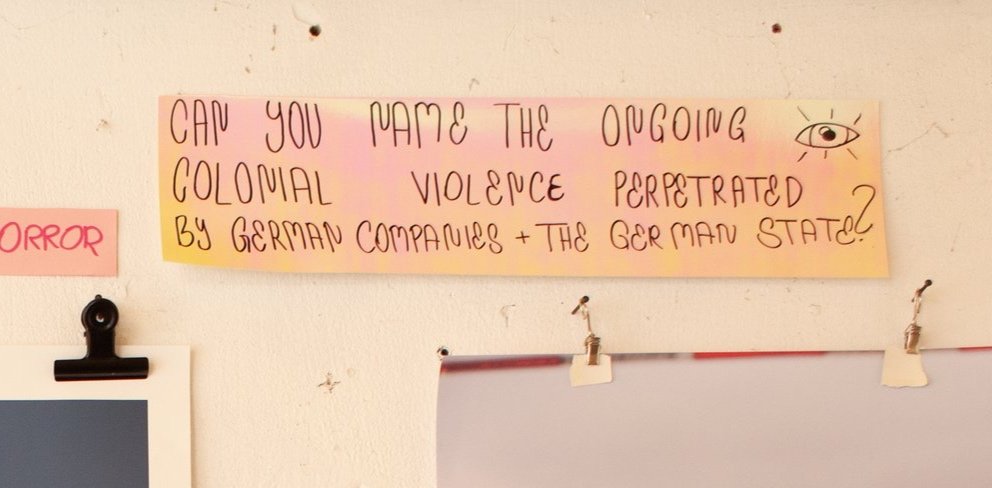 CAN YOU NAME THE ONGOING
COLONIAL VIOLENCE PERPETRATED
BY GERMAN COMPANIES + THE GERMAN STATE?
ORROR